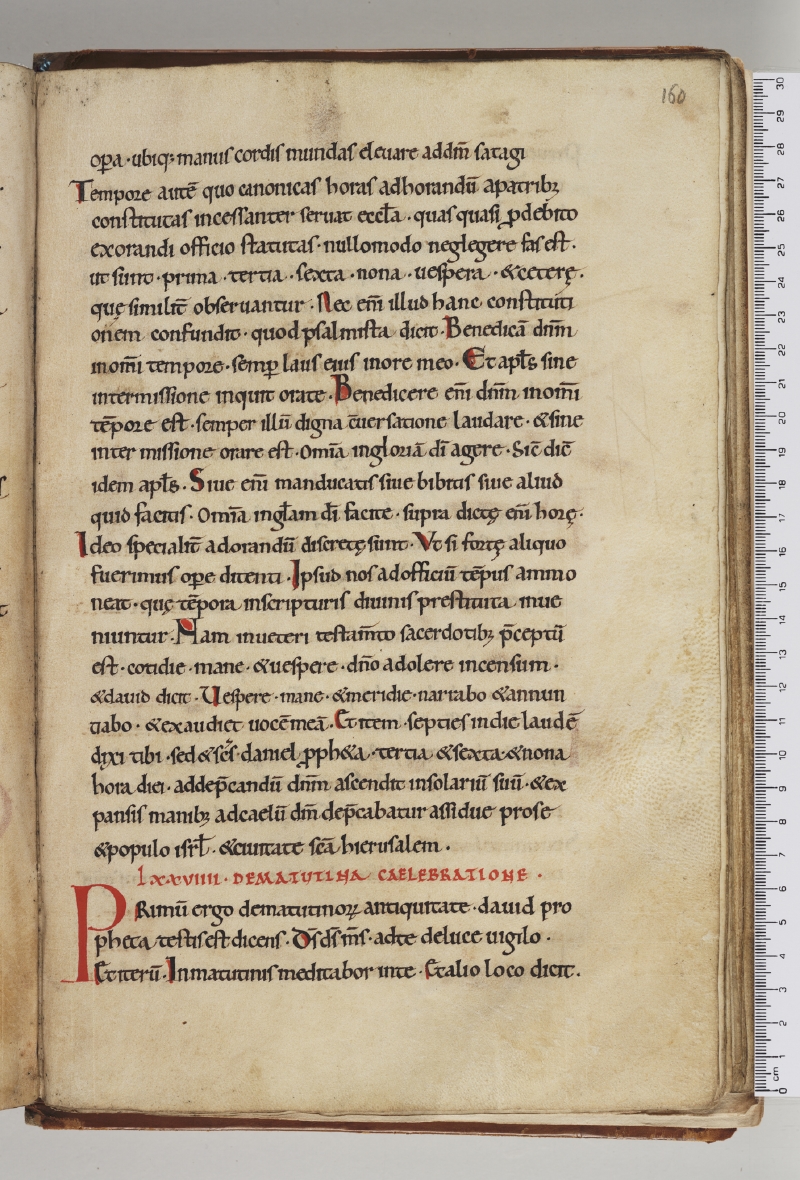 160
oꝑa · ubiq; manus cordis mundas eleuare addm̄ satagi
Tempore autē quo canonicas horas adhorandū apatribꝫ
constitutas incessanter seruat eccl̄a · quas quasi ꝓdebito
exorandi officio statutas · nullomodo neglegere fas est .
ut sunt · prima · tertia · sexta · nona · uespera · &ceterę .
quę similit̄ obseruantur · Nec em̄ illud hanc constituti
onem confundit · quod psalmista dicit · Benedicā dnm̄
inom̄i tempore · semꝑ laus eius inore meo · Et apl̄s sine
intermissione inquit orate · Benedicere em̄ dnm̄ inom̄i
tēpore est · semper illū digna c̄uersatione laudare · &sine
inter missione orare est · Om̄ia ingloriā dī agere · Sic̄ dic̄
idem apl̄s · Siue em̄ manducatis siue bibitis siue aliud
quid facitis · Om̄ia ingl̄am dī facite · supra dictę em̄ horę ·
Ideo specialit̄ adorandū discretę sunt · Vt si fortę aliquo
fuerimus oꝑe ditenti · Ipsud nos adofficiū tēpus ammo
neat · quę tēpora inscripturis diuinis prestituta inue
niuntur · Nam inueteri testam̄to sacerdotibꝫ p̄ceptū
est · cotidie · mane · &uespere · dn̄o adolere incensum ·
&dauid dicit · Vespere · mane · &meridie · narrabo &annun
tiabo · &exaudiet uocē meā · Et item · septies indie laudē
dixi tibi · sed&sc̄s · daniel ꝓph&a · tertia &sexta · &nona
hora diei · addep̄candū dnm̄ ascendit insolariū suū · &ex
pansis manibꝫ adcaelū dm̄ dep̄cabatur assidue prose
&populo isrl̄ · &ciuitate sc̄a hierusalem .
lxxviiii · DEMATUTINA CAELEBRATIONE ·
PRimū ergo dematutinoꝝ antiquitate · dauid pro
pheta testis est dicens · Ds̄ ds̄ ms̄ · adte deluce uigilo ·
Et iterū · Inmatutinis meditabor inte · Et alio loco dicit .